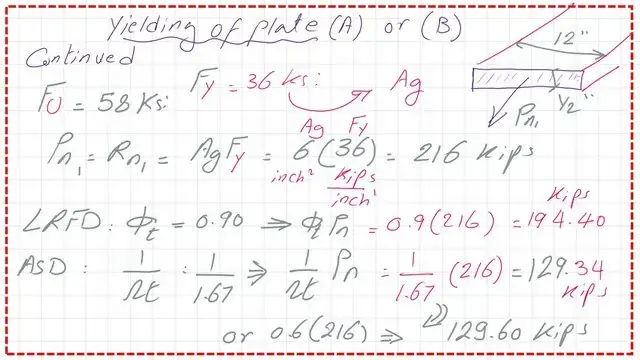 Yielding of plate (A) or (B)
Continued
12"
FU = 58 Ksi
Fy = 36 ksi
Ag
1/2"
Pn1
Ag Fy
Pn1 = Rn1 = AgFy = 6 (36) = 216 kips
inch² kips/inch¹
LRFD: ϕt = 0.90 ⇒ ϕt Pn = 0.9 (216) = 194.40 kips
ASD: 1/Ωt : 1/1.67 ⇒ 1/Ωt Pn = 1/1.67 (216) = 129.34 kips
or 0.6 (216) ⇒ 129.60 kips